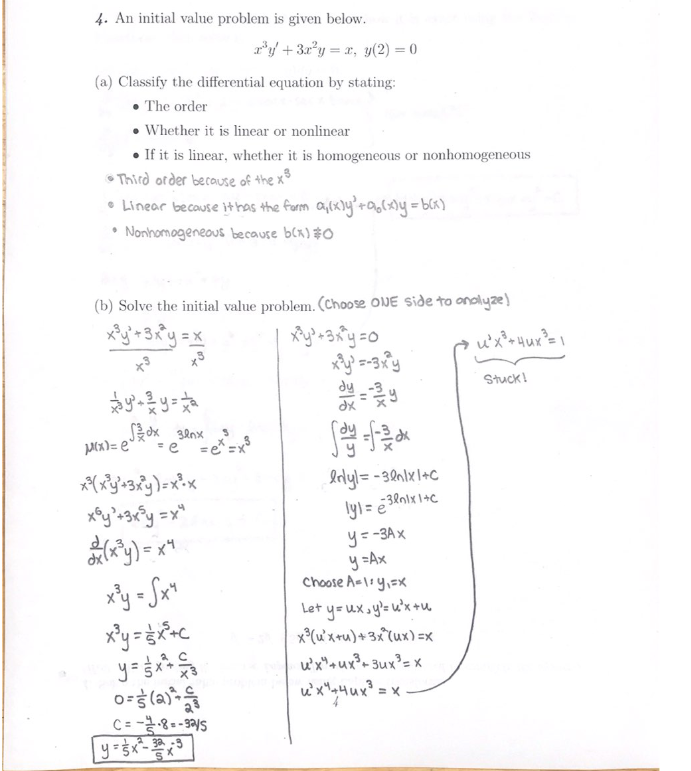 4. An initial value problem is given below.
x³y' + 3x²y = x, y(2) = 0
(a) Classify the differential equation by stating:
• The order
• Whether it is linear or nonlinear
• If it is linear, whether it is homogeneous or nonhomogeneous
• Third order because of the x³
• Linear because it has the form a₁(x)y'+a₀(x)y = b(x)
• Nonhomogeneous because b(x) ≠ 0
(b) Solve the initial value problem. (Choose ONE side to analyze)
x³y'+3x²y = x
x³ x³
1/x³ y'+ 3/x y = 1/x²
μ(x) = e^∫3/x dx = e^3lnx = e^x^3 = x³
x³(x³y'+3x²y) = x³·x
x⁶y'+3x⁵y = x⁴
d/dx(x³y) = x⁴
x³y = ∫x⁴
x³y = 1/5 x⁵+C
y = 1/5 x² + C/x³
0 = 1/5 (2)² + C/2³
C = -4/5 · 8 = -32/5
y = 1/5 x² - 32/5 x⁻³
x³y'+3x²y = 0
x³y' = -3x²y
dy/dx = -3/x y
∫dy/y = ∫-3/x dx
ln|y| = -3ln|x|+C
|y| = e^-3ln|x|+C
y = -3Ax
y = Ax
Choose A=1: y₁=x
Let y = ux, y' = u'x+u
x³(u'x+u)+3x²(ux) = x
u'x⁴+ux³+3ux³ = x
u'x⁴+4ux³ = x
u'x³+4ux³ = 1
Stuck!